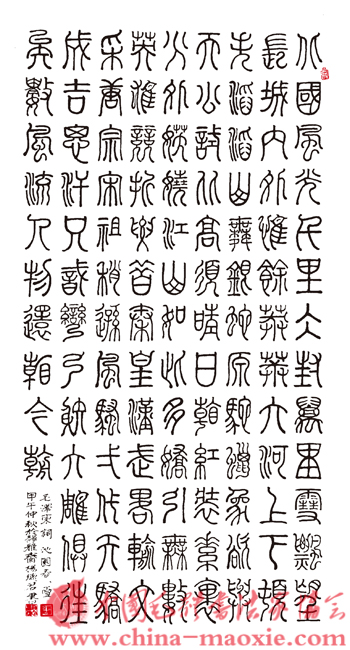 北國風光千里冰封萬里雪飄望
長城內外惟餘莽莽大河上下頓
失滔滔山舞銀蛇原馳蠟象欲與
天公試比高須晴日看紅裝素裹
分外妖嬈江山如此多嬌引無數
英雄競折腰惜秦皇漢武略輸文
采唐宗宋祖稍遜風騷一代天驕
成吉思汗只識彎弓射大雕俱往
矣數風流人物還看今朝
毛澤東詞沁園春雪
甲午仲秋於
www.china-maoxie.com